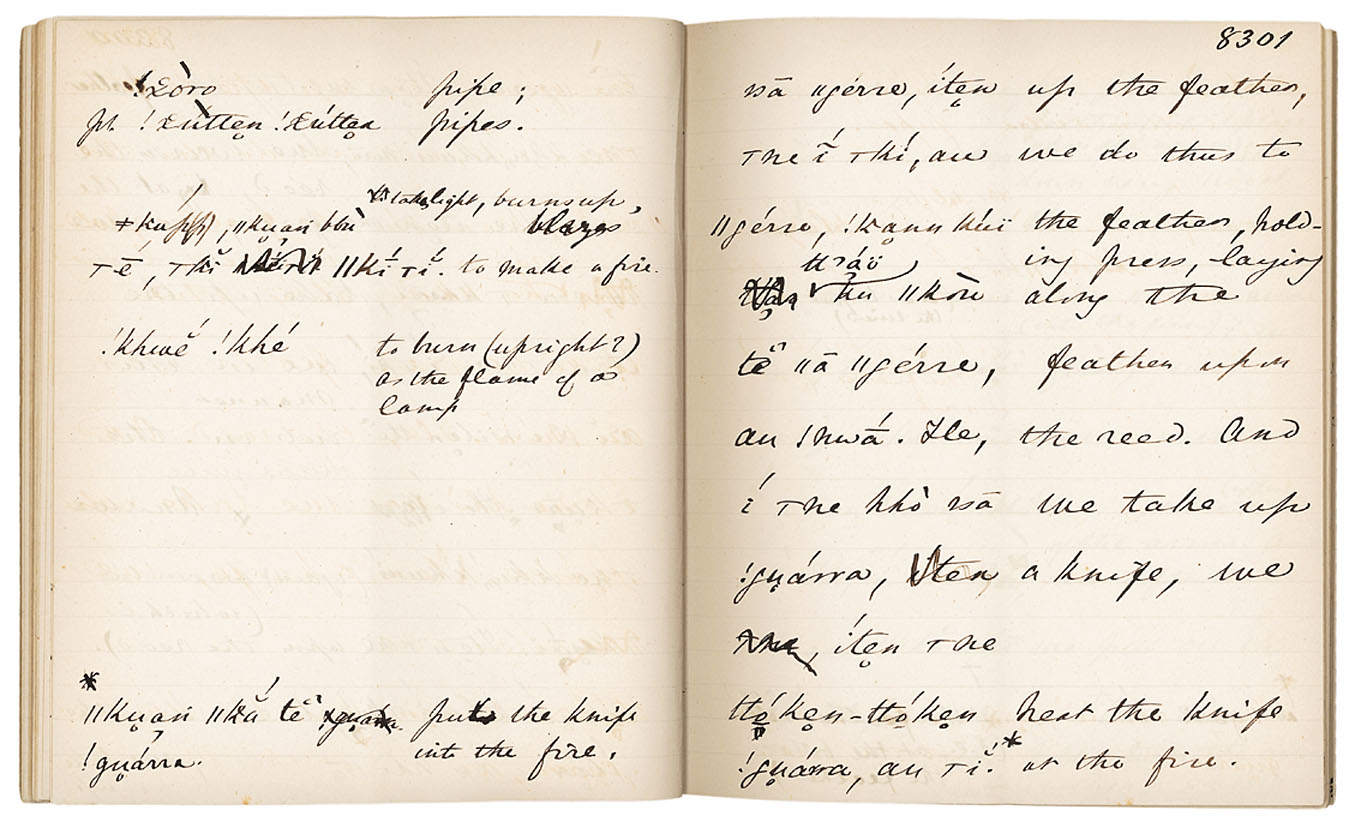 !x̱òro pipe;
pl. !x̱útten̥ !x̱útten̥ pipes.
takes light, burns up,
ǂka, ǁku̥aṅ bbù blazes
ꞇē, ꞇkĭ ǁkĭ ꞇĭ. to make a fire.
!khwĕ́ !khé to burn (upright?)
as the flame of a
lamp
*
ǁku̥aṅ ǁkā́ tĕ̈ put the knife
!gu̥árra. into the fire.
8301
ssā ǁgérre, íte̥n up the feather,
ꞇne ī́ ꞇkí, au we do thus to
ǁgérre, !kḁnn kúï the feather, hold-
ing press, laying
ku ǁkòü along the
tĕ̈ ǁā ǁgérre, feather upon
au !nwā́. He, the reed. And
í ꞇne hhò ssā we take up
!gu̥árra, a knife, we
íte̥n ꞇne
ttó̥ke̥n-ttó̥ke̥n heat the knife
!gu̥árra, au ꞇĭ́.* at the fire.